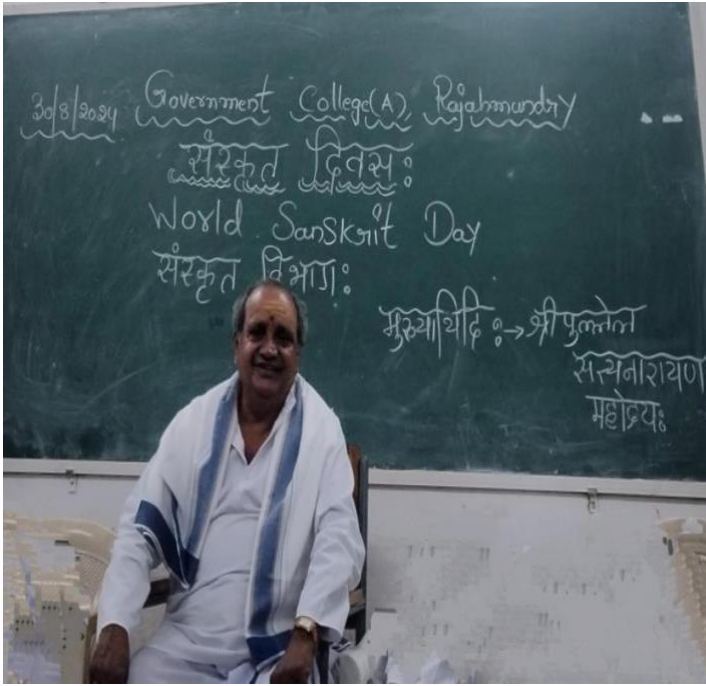 30/8/2024 Government College(A) Rajahmundry
संस्कृत दिवस:
World Sanskrit Day
संस्कृत विभाग:
मुख्याथिदि :→ श्री पुल्लेल
सत्यनारायण
महोदय: